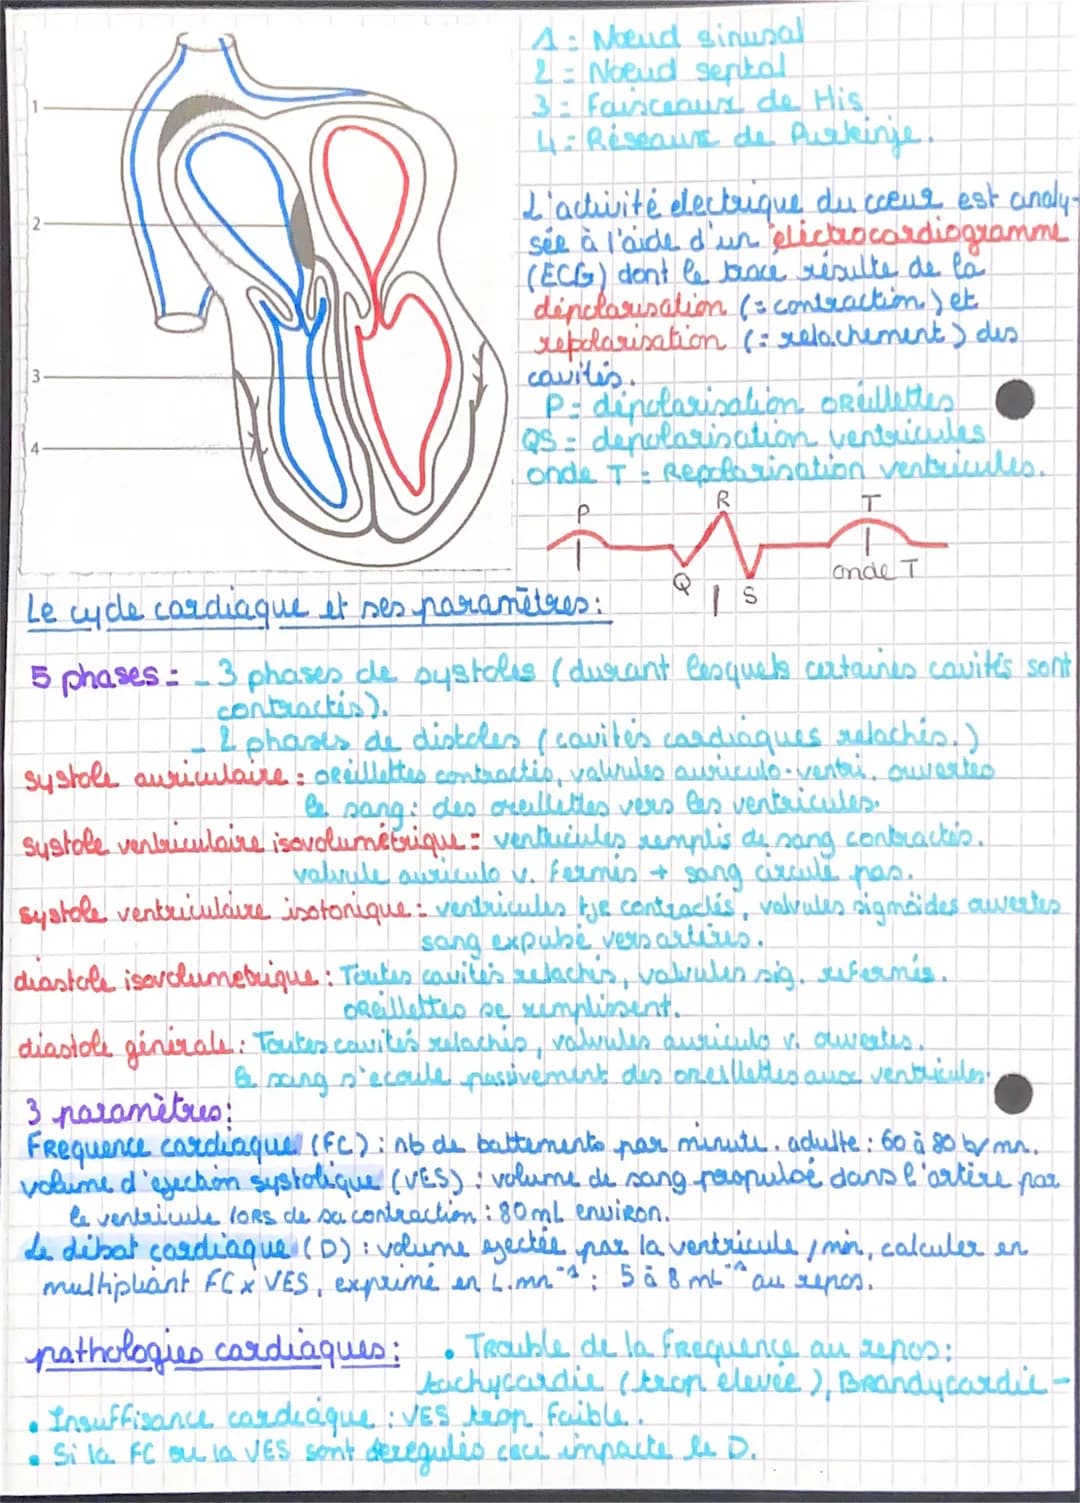 1 : Nœud sinusal
2 = Nœud septal
3 = Faisceaux de His
4 : Réseaux de Purkinje.
1
2
3
4
L'activité electrique du cœur est analy-
sée à l'aide d'un électrocardiogramme
(ECG) dont le trace résulte de la
dépolarisation (= contraction) et
repolarisation (= relachement) des
cavités.
P = dépolarisation oreillettes
QS = depolarisation ventricules
onde T = Repolarisation ventricules.
P
R
T
Q
S
onde T
Le cycle cardiaque et ses paramètres :
5 phases = - 3 phases de systoles (durant lesquels certaines cavités sont
contractés).
- 2 phases de distoles (cavités cardiaques relachés.)
systole auriculaire : oreillettes contractés, valvules auriculo-ventri. ouvertes
le sang : des oreillettes vers les ventricules.
systole ventriculaire isovolumétrique = ventricules remplis de sang contractés.
valvule auriculo v. fermés + sang circule pas.
systole ventriculaire isotonique : ventricules tje contractés, valvules sigmoïdes ouvertes
sang expulsé vers artères.
diastole isovolumetrique : Toutes cavités relachés, valvules sig. refermés.
oreillettes se remplissent.
diastole générale : Toutes cavités relachés, valvules auriculo v. ouvertes.
le sang s'ecoule passivement des oreillettes aux ventricules.
3 paramètres :
Frequence cardiaque (FC) : nb de battements par minute. adulte : 60 à 80 b/mn.
volume d'ejection systolique (VES) : volume de sang propulsé dans l'artère par
le ventricule lors de sa contraction : 80 mL environ.
Le débat cardiaque (D) : volume ejectée par la ventricule / min, calculer en
multipliant FC x VES, exprimé en L.mn⁻¹ : 5 à 8 mL⁻¹ au repos.
pathologies cardiaques : • Trouble de la Frequence au repos :
tachycardie (trop elevée), Brandycardie -
• Insuffisance cardiaque : VES trop faible.
• Si la FC ou la VES sont deregulés ceci impacte le D.